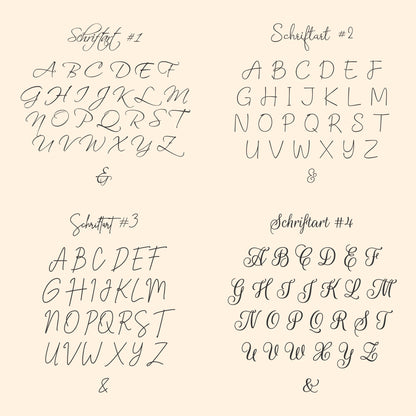 Schriftart #1
A B C D E F
G H I J K L M
N O P Q R S T
U V W X Y Z
&
Schriftart #2
A B C D E F
G H I J K L M
N O P Q R S T
U V W X Y Z
&
Schriftart #3
A B C D E F
G H I J K L M
N O P Q R S T
U V W X Y Z
&
Schriftart #4
A B C D E F
G H I J K L M
N O P Q R S T
U V W X Y Z
&